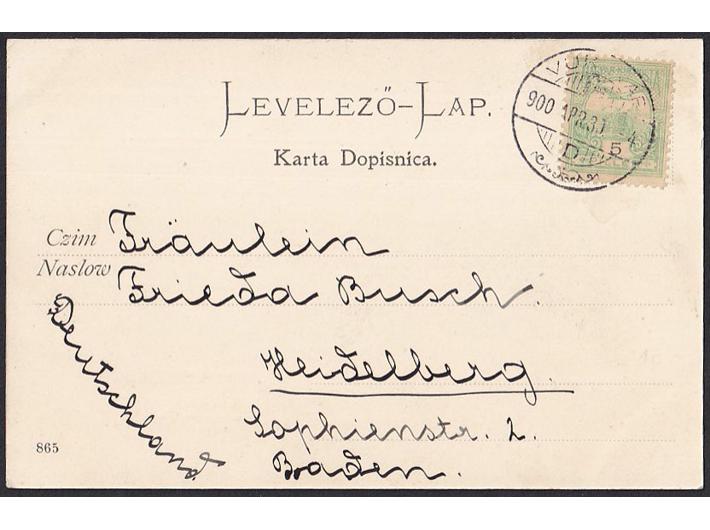 LEVELEZŐ-LAP.
Karta Dopisnica.
900 APR.
D
5
Czim Fräulein
Naslow Frieda Busch.
Heidelberg.
Sophienstr. 2.
Baden.
Deutschland
865